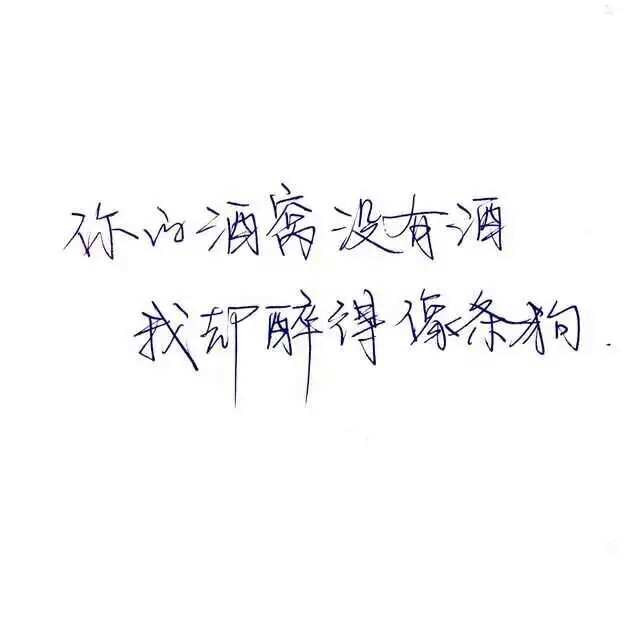 你的酒窝没有酒
我却醉得像条狗.